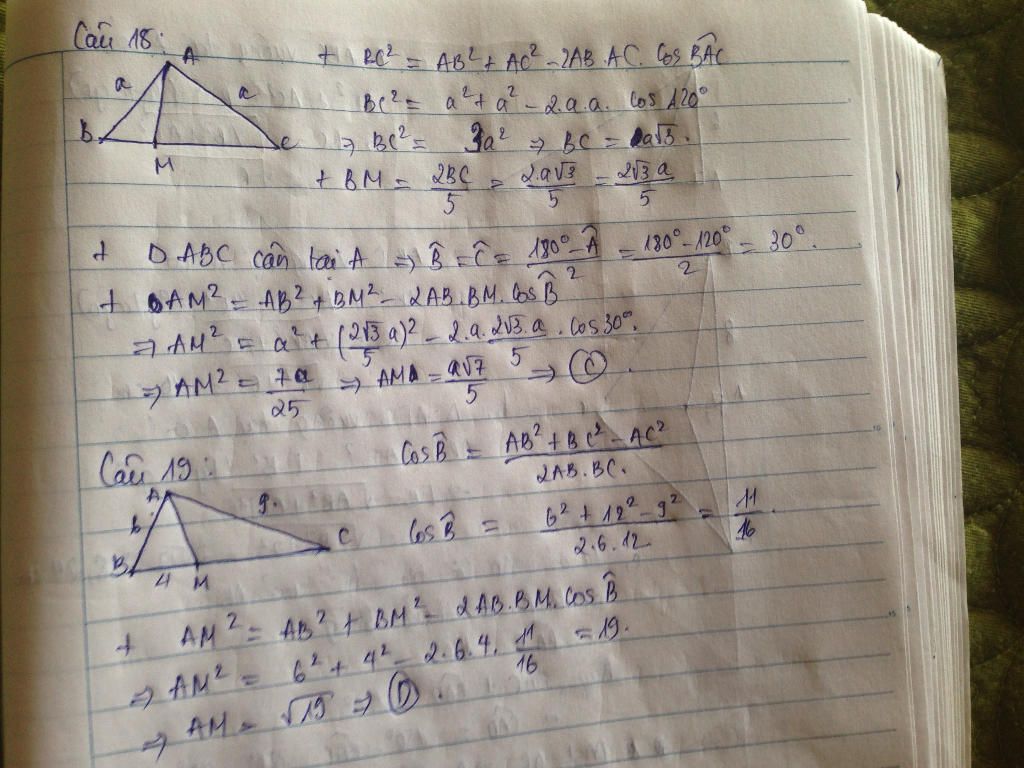 Câu 18:
A
a
a
B
M
C
+ BC² = AB² + AC² - 2AB.AC. Cos BÂC
BC² = a² + a² - 2.a.a. cos 120°
⇒ BC² = 3a² ⇒ BC = a√3.
+ BM = 2BC/5 = 2.a√3/5 = 2√3a/5
+ D ABC cân tại A ⇒ B̂ = Ĉ = (180° - Â)/2 = (180° - 120°)/2 = 30°.
+ AM² = AB² + BM² - 2AB.BM.cosB̂
⇒ AM² = a² + (2√3a/5)² - 2.a.2√3.a/5 . cos30°.
⇒ AM² = 7a/25 ⇒ AM = a√7/5 ⇒ C.
Câu 19:
A
6
9.
B
4
M
C
CosB̂ = (AB² + BC² - AC²)/(2AB.BC.)
CosB̂ = (6² + 12² - 9²)/(2.6.12) = 11/16.
+ AM² = AB² + BM² - 2AB.BM.cosB̂
⇒ AM² = 6² + 4² - 2.6.4. 11/16 = 19.
⇒ AM = √19 ⇒ D.